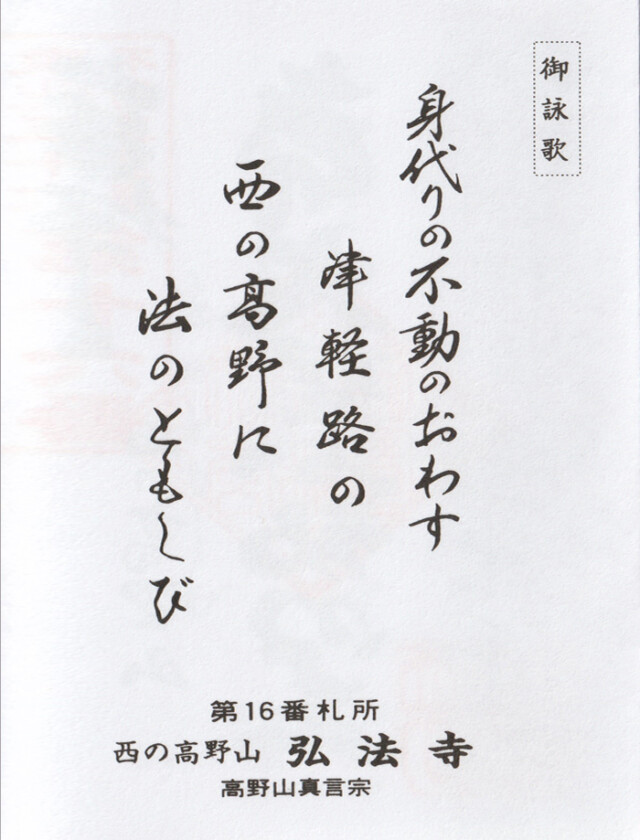 御詠歌
身代りの不動のおわす
津軽路の
西の高野に
法のともしび
第16番札所
西の高野山 弘法寺
高野山真言宗